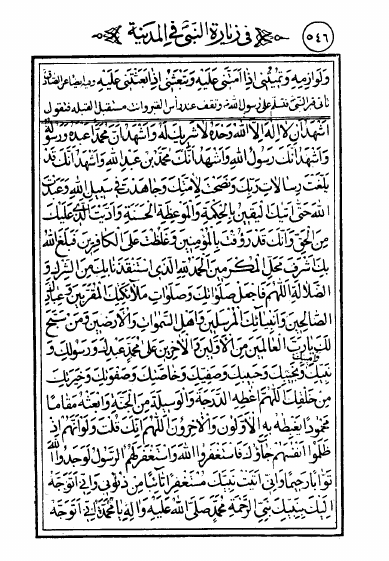 ٥٤٦ في زيارة النبي في المدينة
ولوازمه وتميتني اذا امتني عليه وتبعثني اذا بعثتني عليه
فتقول
اَشْهَدُ اَنْ لا اِلهَ اِلَّا اللهُ وَحْدَهُ لا شَرِيكَ لَهُ وَاَشْهَدُ اَنَّ مُحَمَّداً عَبْدُهُ وَرَسُولُهُ
وَاَشْهَدُ اَنَّكَ رَسُولُ اللهِ وَاَشْهَدُ اَنَّكَ مُحَمَّدُ بْنُ عَبْدِ اللهِ وَاَشْهَدُ اَنَّكَ قَدْ
بَلَّغْتَ رِسَالَاتِ رَبِّكَ وَنَصَحْتَ لِاُمَّتِكَ وَجَاهَدْتَ فِي سَبِيلِ اللهِ وَعَبَدْتَ
اللهَ حَتَّى اَتَاكَ الْيَقِينُ بِالْحِكْمَةِ وَالْمَوْعِظَةِ الْحَسَنَةِ وَاَدَّيْتَ الَّذِي عَلَيْكَ
مِنَ الْحَقِّ وَاَنَّكَ قَدْ رَؤُفْتَ بِالْمُؤْمِنِينَ وَغَلُظْتَ عَلَى الْكَافِرِينَ فَبَلَغَ اللهُ
بِكَ شَرَفَ مَحَلِّ الْمُكَرَّمِينَ الْحَمْدُ لِلّهِ الَّذِي اسْتَنْقَذَنَا بِكَ مِنَ الشِّرْكِ وَ
الضَّلَالَةِ اللّهُمَّ فَاجْعَلْ صَلَوَاتِكَ وَصَلَوَاتِ مَلَائِكَتِكَ الْمُقَرَّبِينَ وَعِبَادِكَ
الصَّالِحِينَ وَاَنْبِيَائِكَ الْمُرْسَلِينَ وَاَهْلِ السَّموَاتِ وَالْاَرَضِينَ وَمَنْ سَبَّحَ
لَكَ يَا رَبَّ الْعَالَمِينَ مِنَ الْاَوَّلِينَ وَالْآخِرِينَ عَلَى مُحَمَّدٍ عَبْدِكَ وَرَسُولِكَ وَ
نَبِيِّكَ وَاَمِينِكَ وَنَجِيِّكَ وَحَبِيبِكَ وَصَفِيِّكَ وَخَاصَّتِكَ وَصَفْوَتِكَ وَخِيَرَتِكَ
مِنْ خَلْقِكَ اللّهُمَّ اَعْطِهِ الدَّرَجَةَ وَالْوَسِيلَةَ مِنَ الْجَنَّةِ وَابْعَثْهُ مَقَاماً
مَحْمُوداً يَغْبِطُهُ بِهِ الْاَوَّلُونَ وَالْآخِرُونَ اللّهُمَّ اِنَّكَ قُلْتَ وَلَوْ اَنَّهُمْ اِذْ
ظَلَمُوا اَنْفُسَهُمْ جَاؤُكَ فَاسْتَغْفَرُوا اللهَ وَاسْتَغْفَرَ لَهُمُ الرَّسُولُ لَوَجَدُوا اللهَ
تَوَّاباً رَحِيماً وَاِنِّي اَتَيْتُ نَبِيَّكَ مُسْتَغْفِراً تَائِباً مِنْ ذُنُوبِي وَاِنِّي اَتَوَجَّهُ
اِلَيْكَ بِنَبِيِّكَ نَبِيِّ الرَّحْمَةِ مُحَمَّدٍ صَلَّى اللهُ عَلَيْهِ وَآلِهِ يَا مُحَمَّدُ اِنِّي اَتَوَجَّهُ